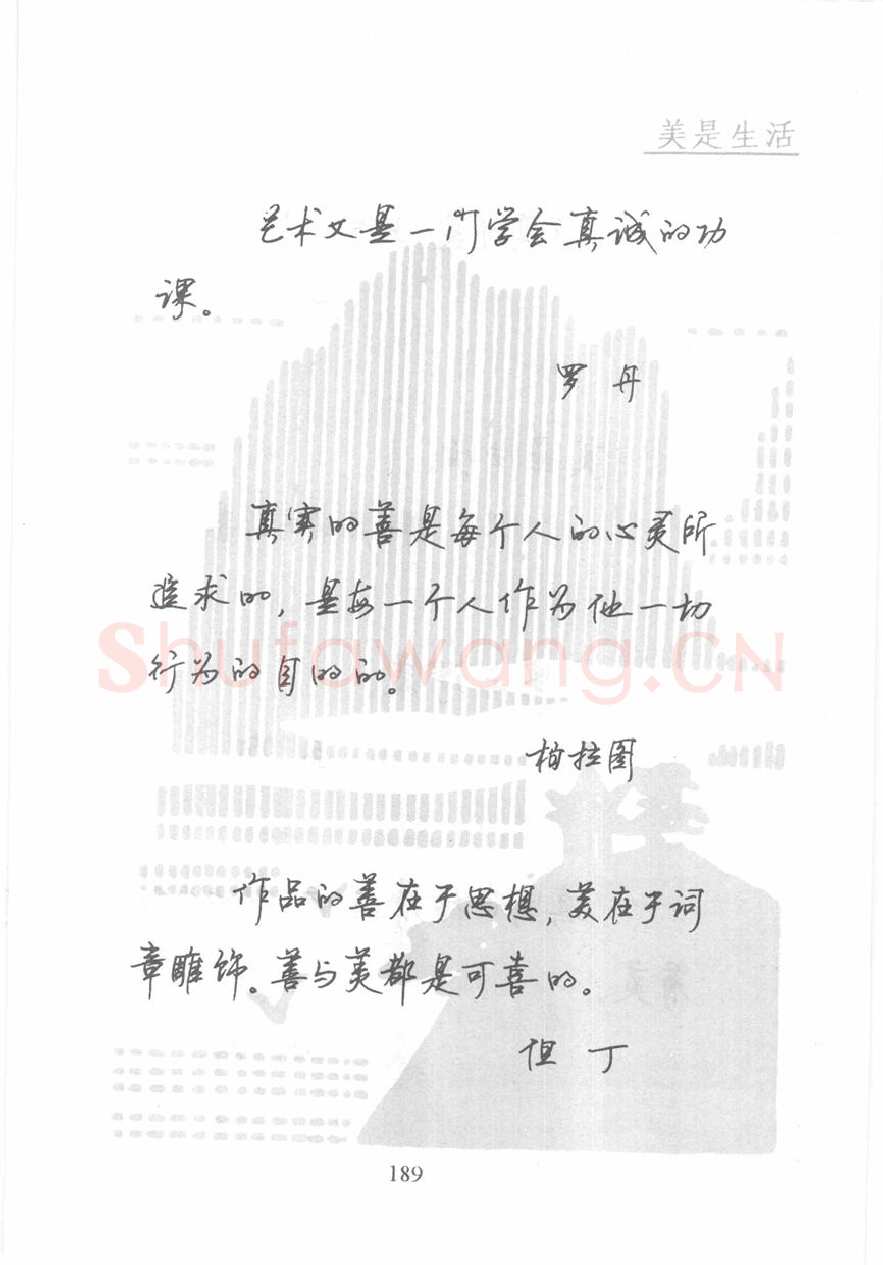 美是生活
艺术又是一门学会真诚的功
课。
罗丹
真实的善是每个人的心灵所
追求的，是每一个人作为他一切
行为的目的的。
Shufawang.CN
柏拉图
作品的善在于思想，美在于词
章雕饰。善与美都是可喜的。
但丁
189